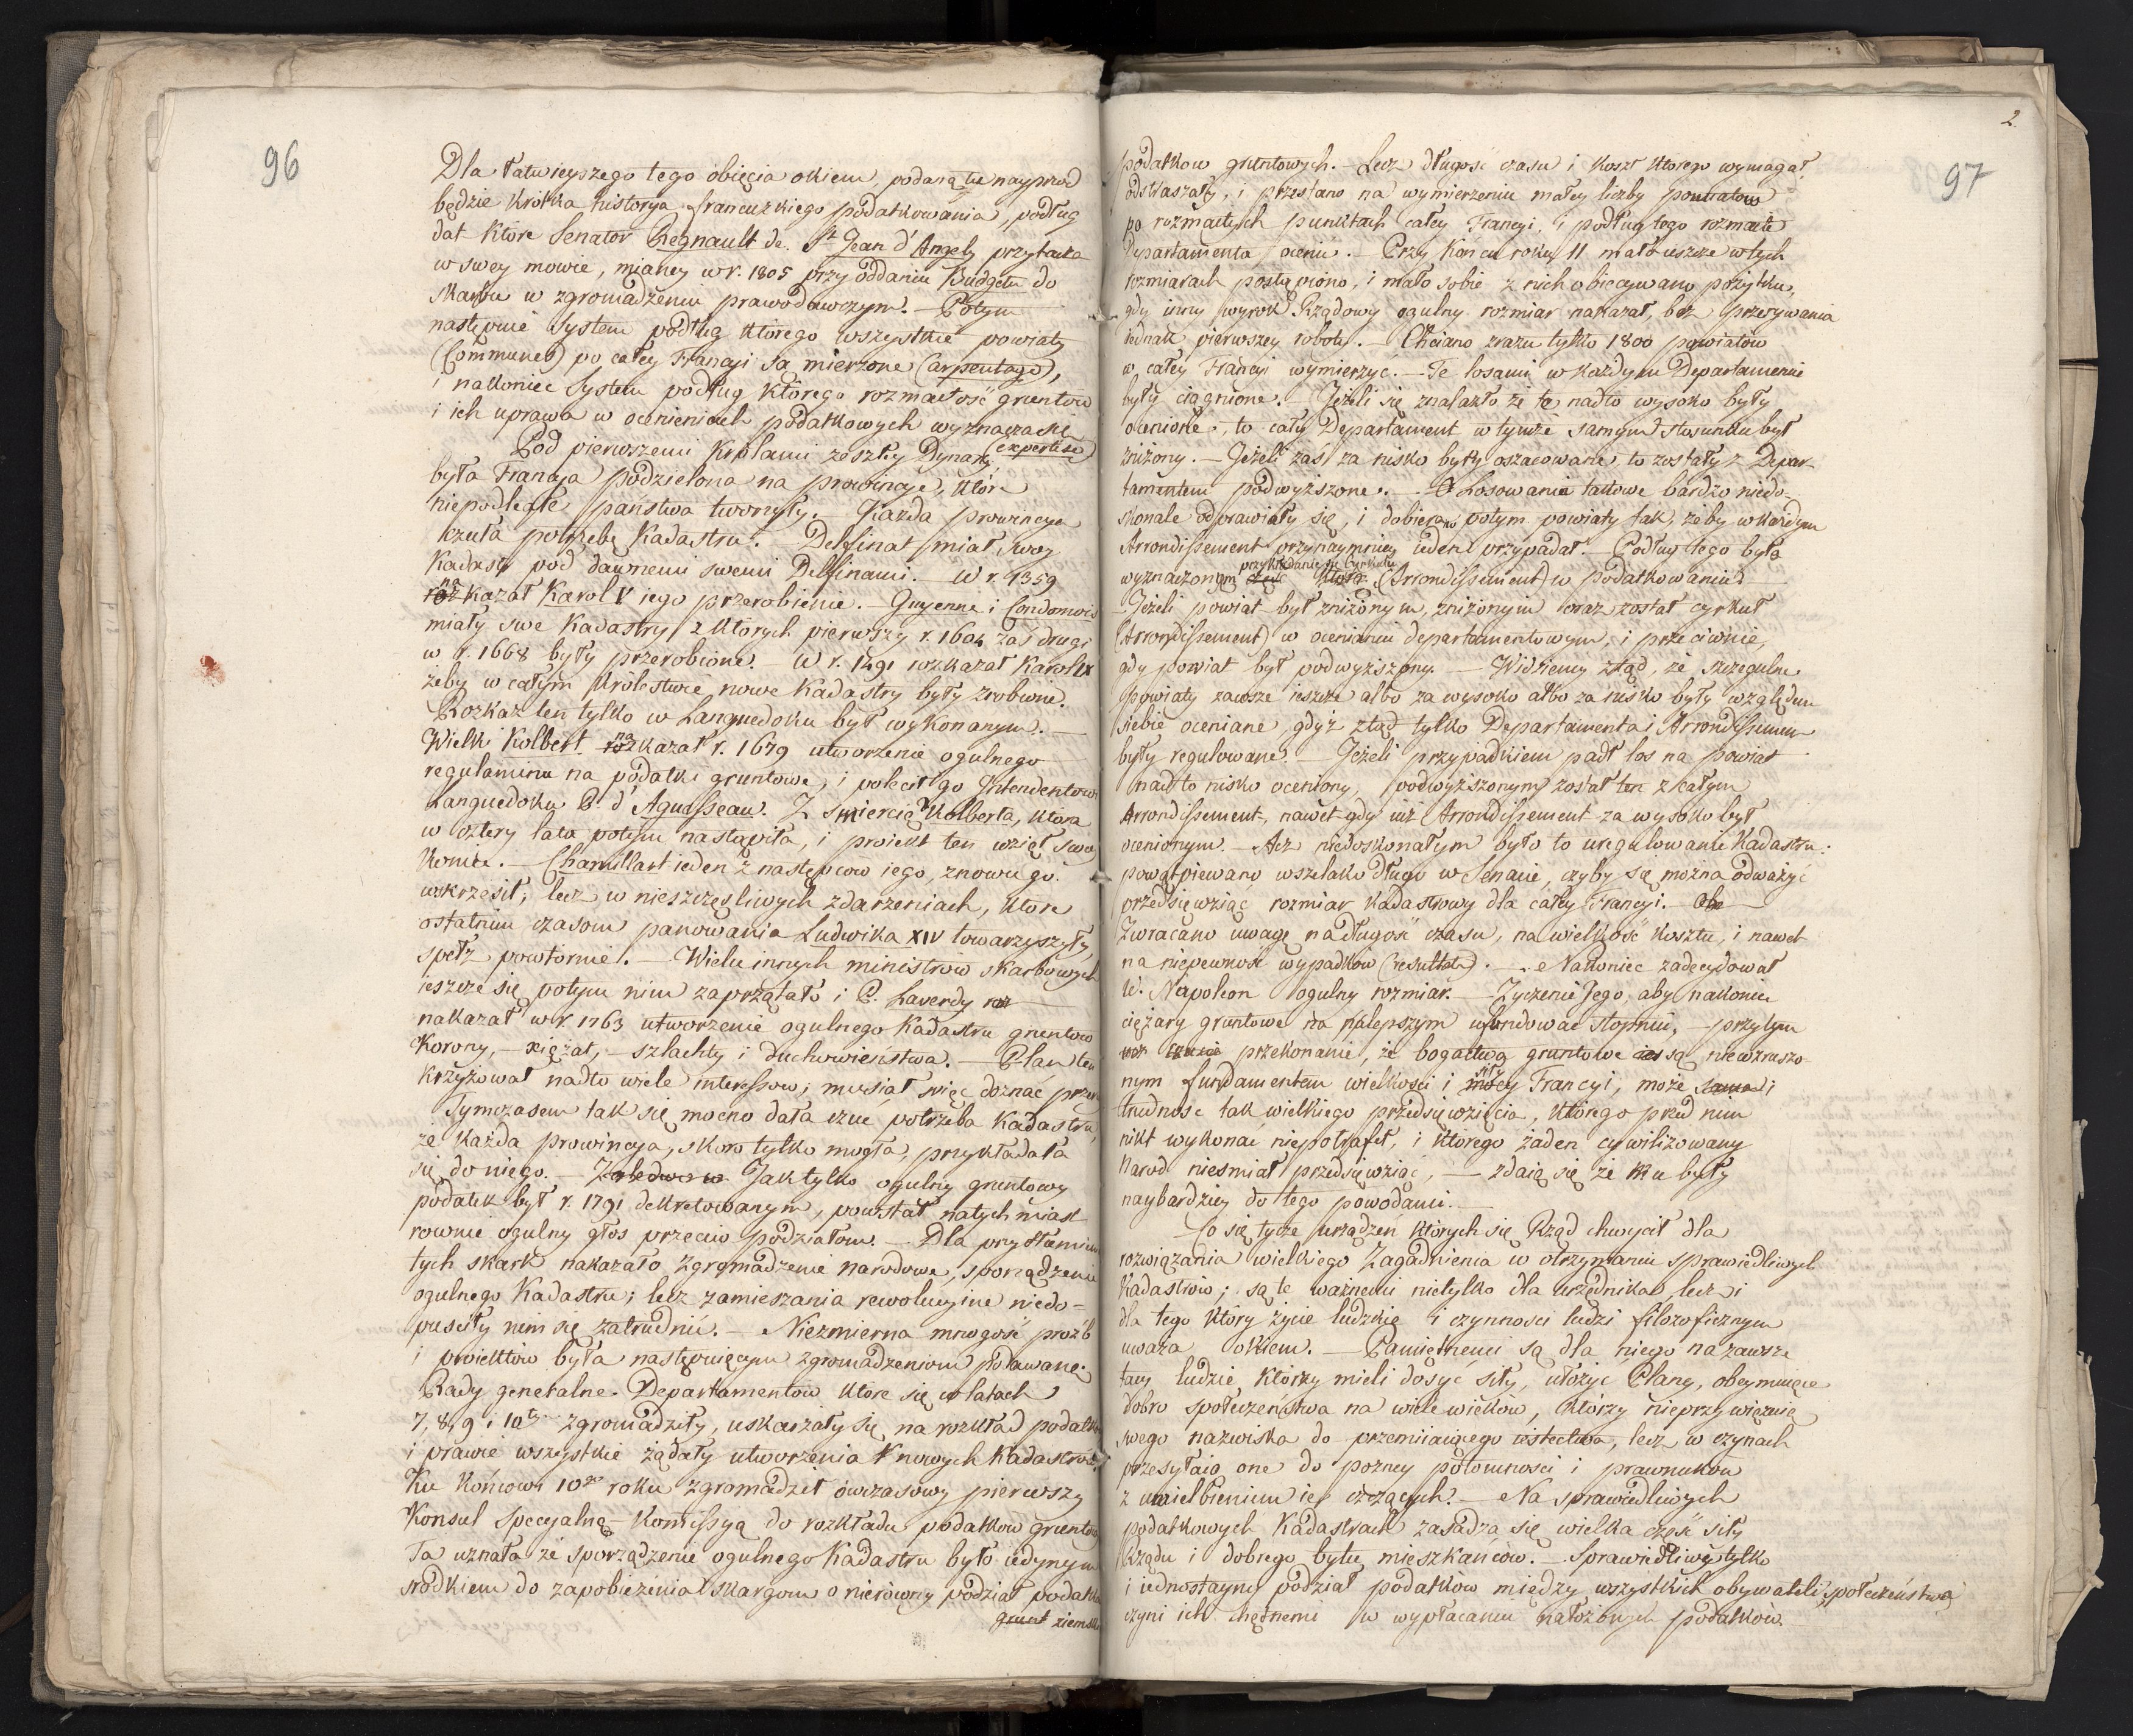 96
Dla łatwieyszego tego obięcia okiem, podaną tu nayprzod
będzie krótka historya francuzkiego podatkowania, podług
dat które Senator Regnault de St Jean d'Angely przytacza
w swey mowie, mianey w r. 1805 przy oddaniu Budgetu do
skarbu w zgromadzeniu prawodawczym. — Potym
nastąpuie System podług którego wszystkie powiaty
(Communes) po całey Francyi są mierzone (arpentage),
i nakoniec System podług którego rozmaitość gruntów
i ich uprawa w ocenieniach podatkowych wyznacza się
(expertise)
Pod pierwszemi Krolami zeszłey Dynasty
była Francya podzielona na prowincye, które
niepodległe państwa tworzyły. — Każda prowincya
czuła potrzebę Kadastru. — Delfinat miał swoy
Kadastr pod dawnemi swemi Delfinami. — W r. 1359
na
rozkazał Karol V iego przerobienie. — Guyenne i Condomois
miały swe Kadastry z których pierwszy r. 1604 zaś drugi
w r. 1668 były przerobione. — W r. 1491 rozkazał Karol IX
żeby w całym Królestwie nowe Kadastry były zrobione.
Rozkaz ten tylko w Languedoku był wykonanym. —
Wielki Kolbert
na
rozkazał r. 1679 utworzenie ogulnego
regulaminu na podatki gruntowe, i polecił go Intendentowi
Languedoku P. d'Aguesseau. Z smiercią Kolberta, która
w cztery lata potym nastąpiła, i proiekt ten wziął swoy
koniec. — Chamillart ieden z następców iego, znowu go
wskrzesił; lecz w nieszczęśliwych zdarzeniach, które
ostatnim czasom panowania Ludwika XIV towarzyszyły,
spełz powtórnie. — Wielu innych ministrów skarbowych
ieszcze się potym nim zaprzątało i P. Laverdy roz
nakazał w r. 1763 utworzenie ogulnego Kadastru gruntow
Korony, — xiążąt, — szlachty i duchowieństwa. — Plan ten
krzyżował nadto wiele interessow; musiał więc doznać
Tymczasem tak się mocno dała czuc potrzeba Kadastru,
że każda prowincya, skoro tylko mogła, przykładała
się do niego. — Zaledwo w Jak tylko ogulny gruntowy
podatek był r. 1791 dekretowanym, powstał natychmiast
rownie ogulny głos przeciw podziałom. — Dla przytłumienia
tych skark nakazało zgromadzenie narodowe, sporządzenie
ogulnego Kadastru; lecz zamieszania rewolucyine niedo-
puscily nim się zatrudnić. — Niezmierna mnogość proźb
i proiektów była następuiącym zgromadzeniom podawana.
Rady generalne Departamentow które się w latach
7, 8, 9 i 10tym zgromadziły, uskarżały się na rozkład podatków
i prawie wszystkie żądały utworzenia nowych Kadastrów.
Ku końcowi 10go roku zgromadził ówczasowy pierwszy
Konsul specyalną Komissyą do rozkładu podatkow gruntow
Ta uznała że sporządzenie ogulnego Kadastru było iedynym
srodkiem do zapobieżenia skargom o nierówny podział podatku
grunt ziemsk
2
97
podatkow gruntowych. — Lecz długość czasu i koszt którego wymagał,
odstraszały, i przestano na wymierzeniu małey liczby powiatow
po rozmaitych punktach całey Francyi, i podług tego rozmaite
Departamenta ocenić. — Przy końcu roku 11 mało ieszcze w tych
rozmiarach postąpiono, i mało sobie z nich obiecywano pożytku,
gdy inny wyrok Rządowy ogulny rozmiar nakazał, bez przerywania
iednak pierwszey roboty. — Chciano zrazu tylko 1800 powiatów
w całey Francyi wymierzyć. — Te losami w każdym Departamencie
były ciągnione. Jeżeli się znalazło że te nadto wysoko były
ocenione, to cały Departament w tymże samym stosunku był
zniżony. — Jeżeli zaś za nisko były oszacowane, to zostały z Depar-
tamentem podwyższone. — Losowania takowe bardzo niedo-
skonale odprawiały się, i dobierano potym powiaty tak, żeby w każdym
Arrondissement przynaymniey ieden przypadał. — Podług tego była
przykładanie się Cyrkułu
wyznaczonym (Arrondissement) w podatkowaniu
— Jeżeli powiat był zniżonym, zniżonym oraz został cyrkuł
(Arrondissement) w ocenianiu departamentowym, i przeciwnie,
gdy powiat był podwyższony. — Widziemy ztąd, że szczegulne
powiaty zawsze ieszcze albo za wysoko albo za nisko były względem
siebie oceniane, gdyż ztąd tylko Departamenta i Arrondissemen
były regulowane. — Jeżeli przypadkiem padł los na powiat
nadto nisko oceniony, podwyższonym został ten z całym
Arrondissement, nawet gdy iuż Arrondissement za wysoko był
ocenionym. — Acz niedoskonałym było to uregulowanie Kadastru.
powątpiewano wszelako długo w Senacie, czyby się można odważyć
przedsięwziąć rozmiar kadastrowy dla całey Francyi.
Zwracano uwagę na długość czasu, na wielkość kosztu, i nawet
na niepewność wypadkow (resultata). — Nakoniec zadecydował
W. Napoleon ogulny rozmiar. — Życzenie Jego, aby nakoniec
ciężary gruntowe na naylepszym ufundować stopniu, — przytym
przekonanie, że bogactwa gruntowe są niewzruszo-
nym fundamentem wielkości i
siły
mocy Francyi, może sama i
trudnosc tak wielkiego przedsięwzięcia, którego przed nim
nikt wykonać niepotrafił, i którego żaden cywilizowany
Narod niesmiał przedsięwziąć, — zdaią się że mu były
naybardziey do tego powodami. —
Co się tycze urządzeń których się Rząd chwycił dla
rozwiązania wielkiego Zagadnienia w otrzymaniu sprawiedliwych
Kadastrów; są te ważnemi nietylko dla urzędnika lecz i
dla tego który życie ludzkie i czynnosci ludzi filozoficznym
uważa okiem. — Pamiętnemi są dla niego na zawsze
tacy ludzie, którzy mieli dosyć siły, ułożyć Plany, obeymuiące
dobro społeczeństwa na wiele wieków, którzy nieprzywięzuią
swego nazwiska do przemiiaiącego iestectwa, lecz w czynach
przesyłaią one do pozney potomnosci i prawnuków
z uwielbieniem ie czczących. — Na sprawiedliwych
podatkowych Kadastrach zasadza się wielka część siły
Rządu i dobrego bytu mieszkańców. — Sprawiedliwy tylko
i iednostayny podział podatków między wszystkich obywateli społeczeństwa
czyni ich chętnemi w wypłacaniu nałożonych podatków.